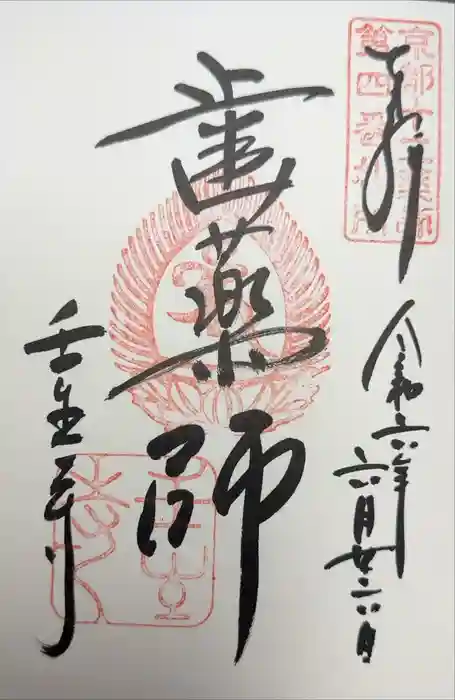 奉拝
京都十二薬師
第四番札所
令和六年
六月廿六日
歯薬師
壬生寺